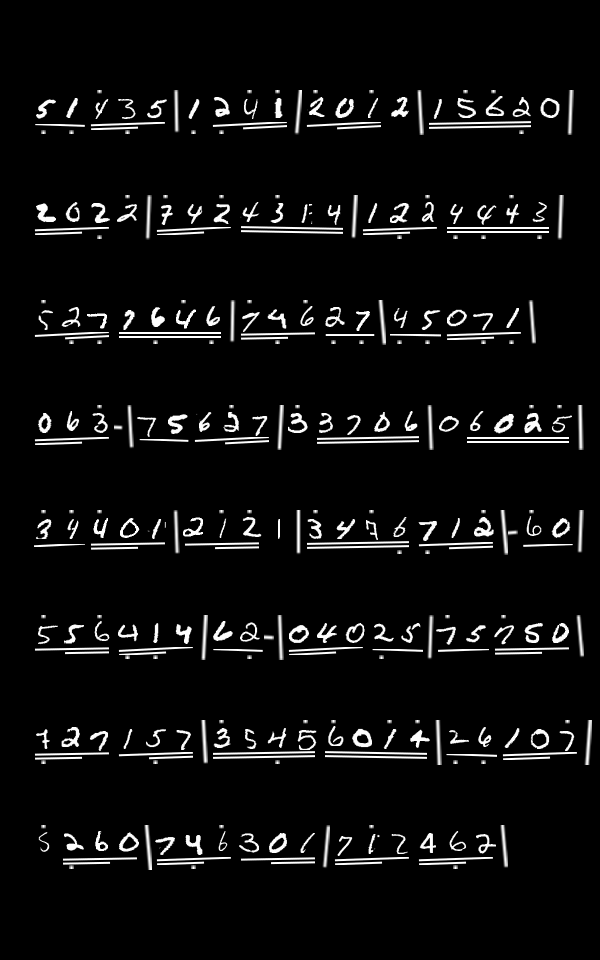 51435|1241|2012|15620|
2022|7424314|1224443|
5279646|74627|45071|
063-|75627|33706|06025|
34401|2121|3476712|-60|
556414|62-|04025|75750|
727157|35456014|26107|
5260|746301|712462|